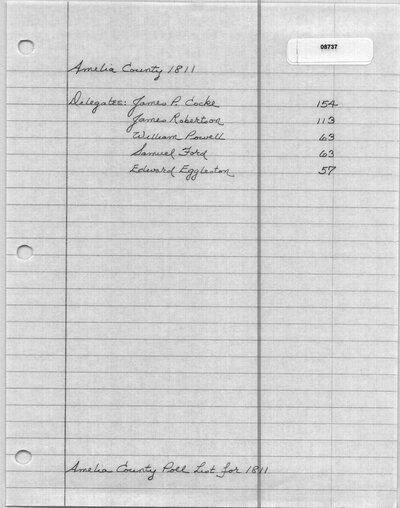 08737
Amelia County 1811
Delegates: James P. Cocke 154
James Robertson 113
William Powell 63
Samuel Ford 63
Edward Eggleston 57
Amelia County Poll List for 1811